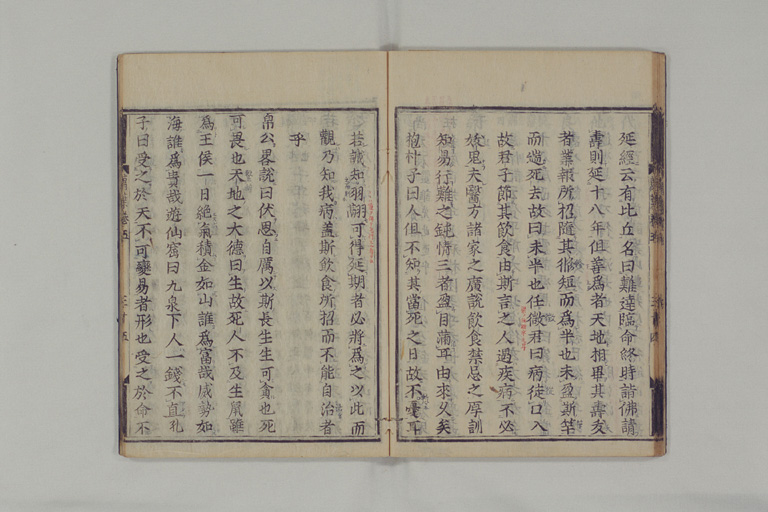 延經云有比丘名曰難達臨命終時詣佛請
壽則延十八年但善爲者天地相畢其壽夭
者業報所招隨其脩短而爲半也未盈斯笇
而遄死去故曰未半也任徵君曰病從口入
故君子節其飲食由斯言之人遇疾病不必
妖鬼夫醫方諸家之廣說飲食禁忌之厚訓
知易行難之鈍情三者盈目滿耳由來久矣
抱朴子曰人但不知其當死之日故不憂耳
若誠知羽翮可得延期者必將爲之以此而
觀乃知我病蓋斯飲食所招而不能自治者
乎
帛公畧說曰伏思自勵以斯長生生可貪也死
可畏也天地之大德曰生故死人不及生鼠雖
爲王侯一日絕氣積金如山誰爲富哉威勢如
海誰爲貴哉遊仙窟曰九泉下人一錢不直孔
子曰受之於天不可變易者形也受之於命不